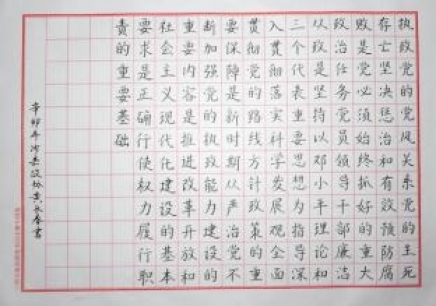 执政党的党风关系党的生死
存亡坚决惩治和有效预防腐
败是党必须始终抓好的重大
政治任务党员领导干部廉洁
从政是坚持以邓小平理论和
三个代表重要思想为指导深
入贯彻落实科学发展观全面
贯彻党的路线方针政策的重
要保障是新时期从严治党不
断加强党的执政能力建设的
重要内容是推进改革开放和
社会主义现代化建设的基本
要求是正确行使权力履行职
责的重要基础
辛卯年沙县